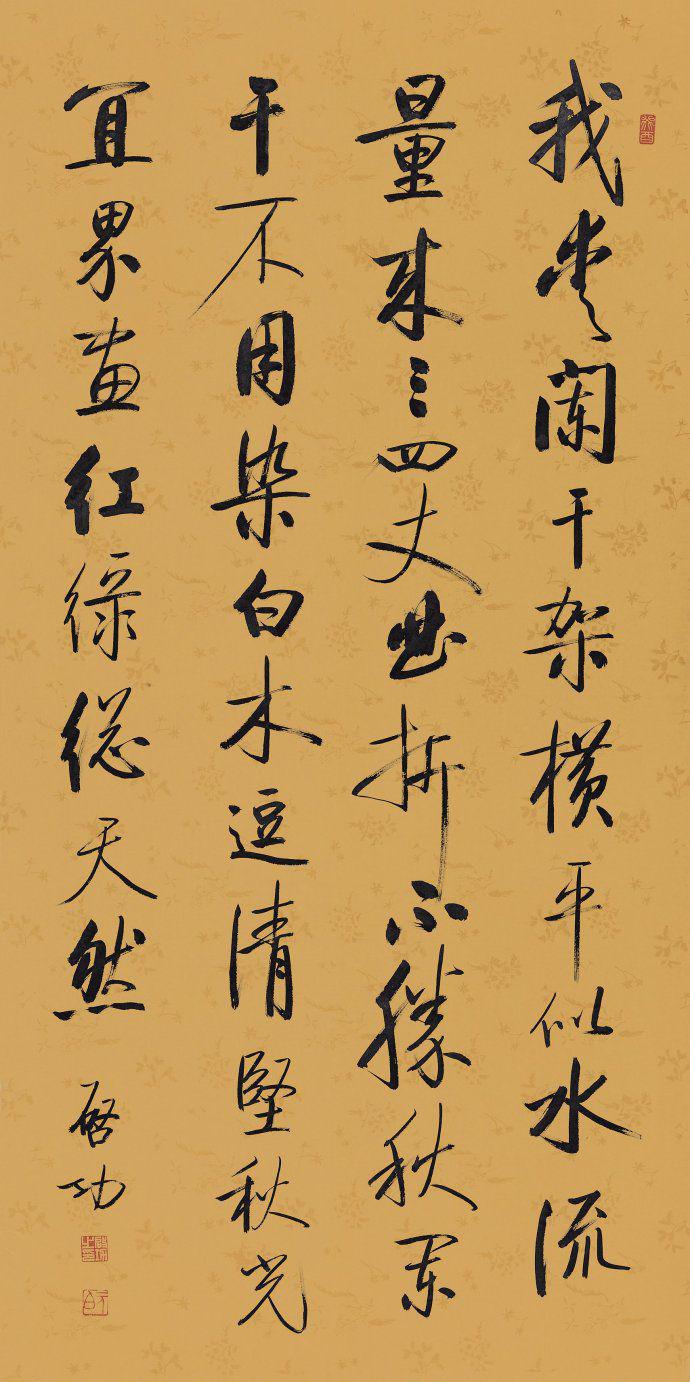 我愛闌干架橫平似水流
量来三四丈曲折不勝秋闌
干不用染白木逗清堅秋光
宜界畫紅綠總天然
啓功